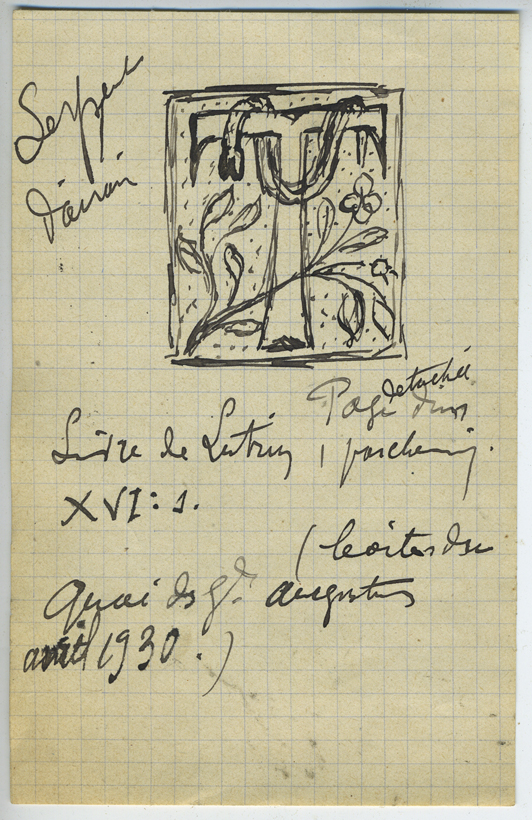 Serpent
d'airain
Page detachée d'un
Livre de Lutrin, parchemin.
XVI: s.
(boites du
Quai des gds augustins
avril 1930.)